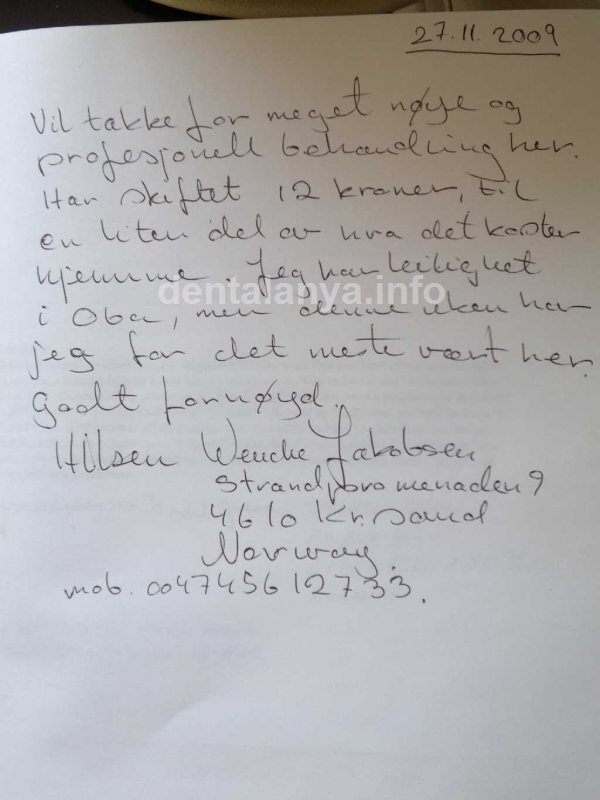 27.11.2009
Vil takke for meget nøye og
profesjonell behandling her.
Har skiftet 12 kroner, til
en liten del av hva det koster
hjemme. Jeg har leilighet
dentalanya.info
i Oba, men denne uken har
jeg for det meste vært her.
Godt fornøyd.
Hilsen Wenche Jakobsen
Strandpromenaden 9
4610 Kr.sand
Norway.
mob. 004745612733.